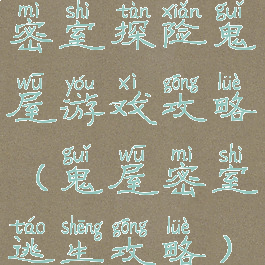 mì shì tàn xiǎn guǐ
密室探险鬼
wū yóu xì gōng lüè
屋游戏攻略
guǐ wū mì shì
（鬼屋密室
táo shēng gōng lüè
逃生攻略）